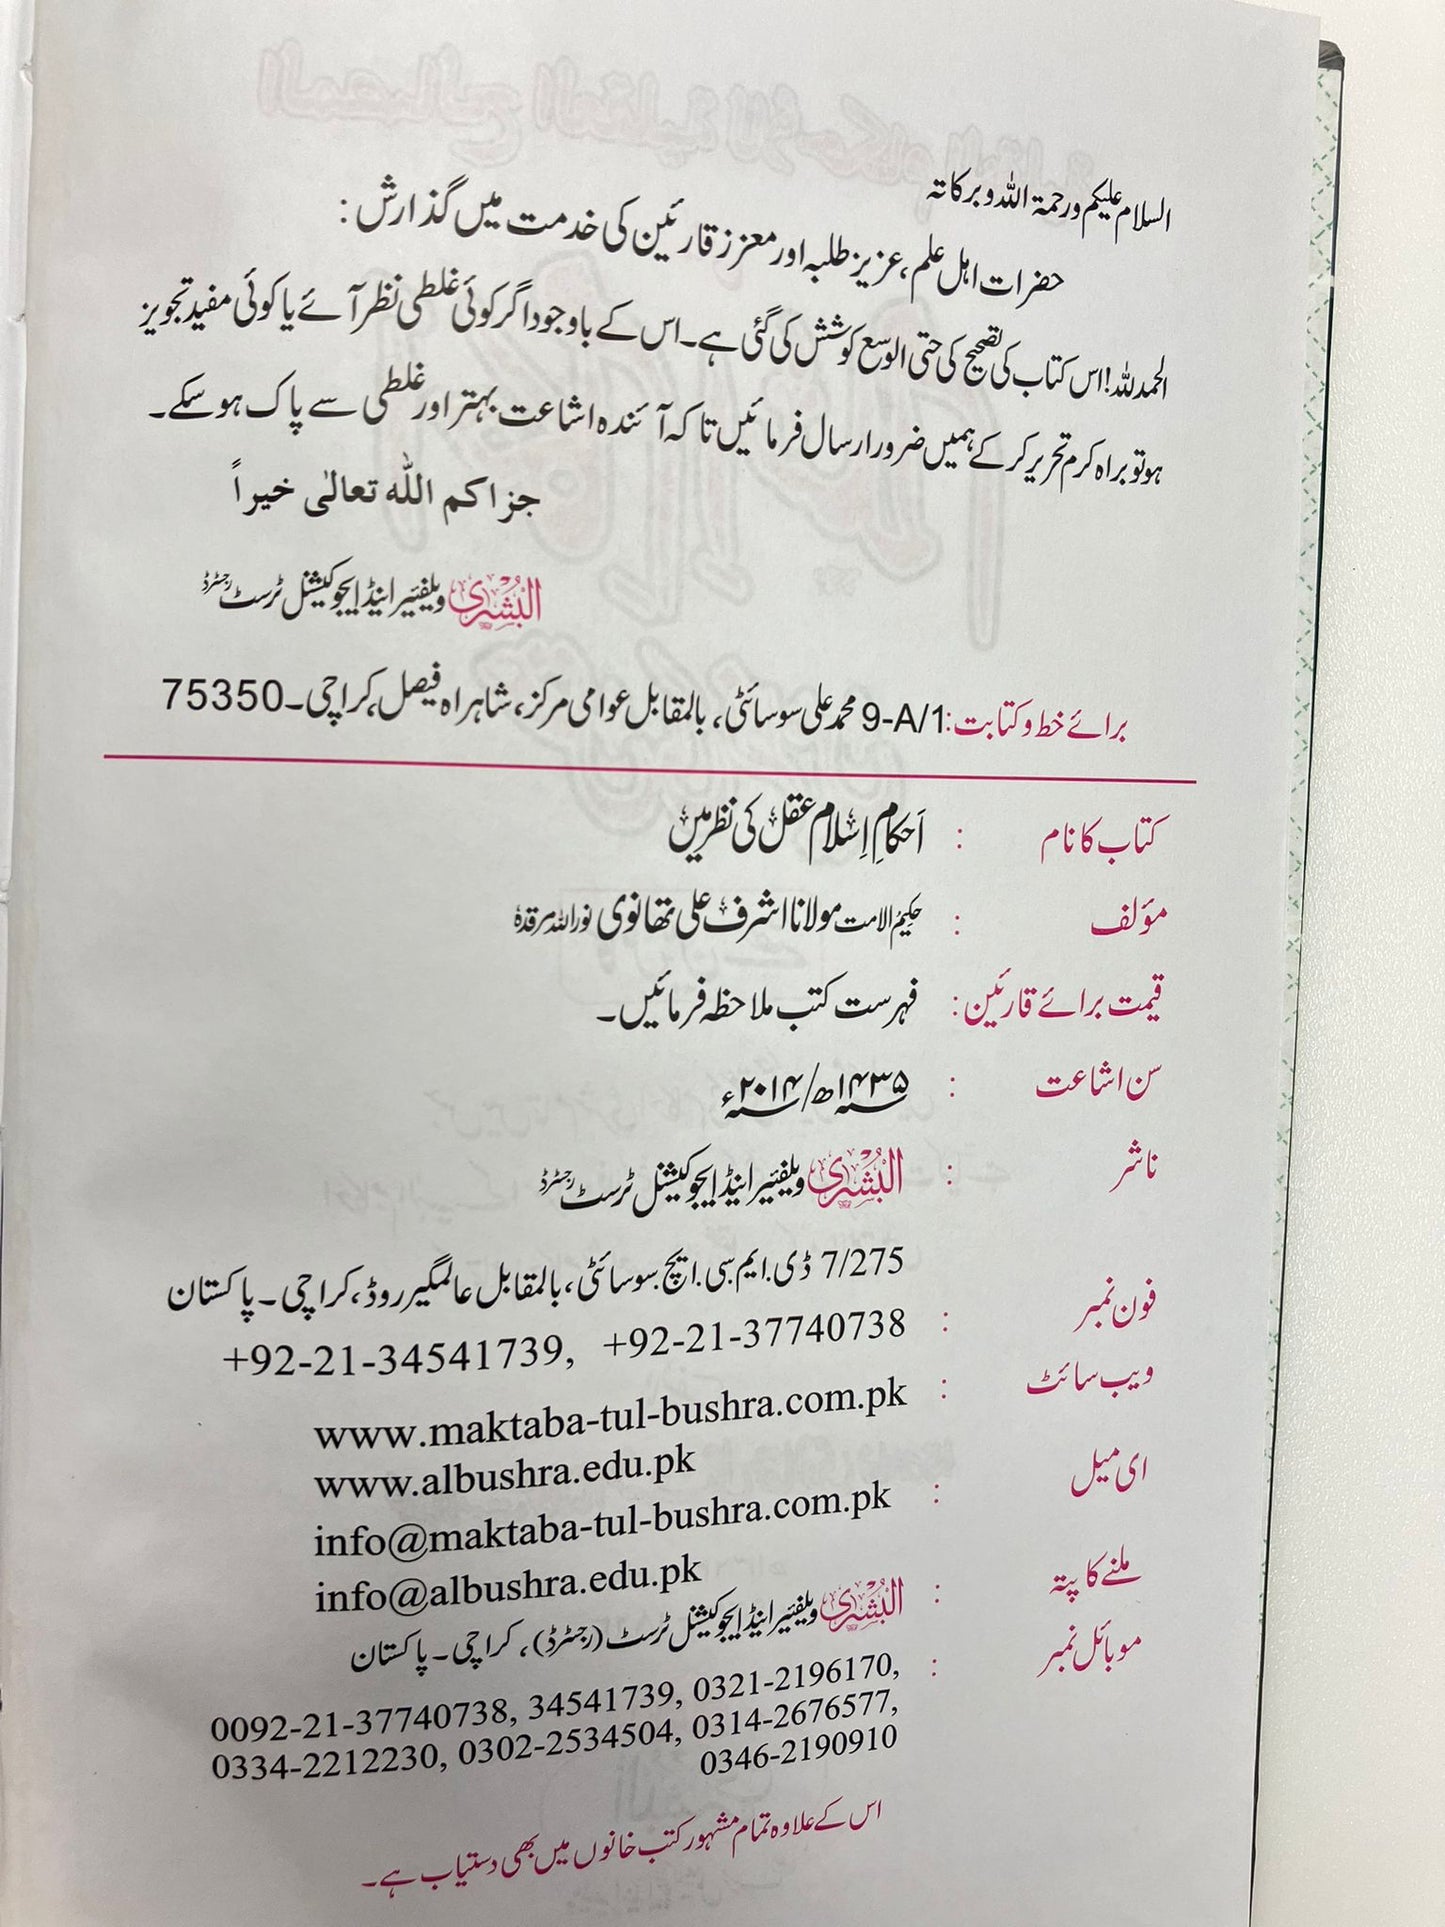 السلام علیکم ورحمۃ اللہ وبرکاتہ
حضرات اہل علم، عزیز طلبہ اور معزز قارئین کی خدمت میں گذارش:
الحمد للہ! اس کتاب کی تصحیح کی حتی الوسع کوشش کی گئی ہے۔ اس کے باوجود اگر کوئی غلطی نظر آئے یا کوئی مفید تجویز
ہو تو براہ کرم تحریر کر کے ہمیں ضرور ارسال فرمائیں تاکہ آئندہ اشاعت بہتر اور غلطی سے پاک ہو سکے۔
جزاکم اللہ تعالیٰ خیراً
البُشریٰ ویلفیئر اینڈ ایجوکیشنل ٹرسٹ رجسٹرڈ
برائے خط وکتابت: 9-A/1 محمد علی سوسائٹی، بالمقابل عوامی مرکز، شاہراہ فیصل، کراچی۔ 75350
کتاب کا نام : اَحکامِ اِسْلام عقل کی نظر میں
مؤلف : حکیم الامت مولانا اشرف علی تھانوی نور اللہ مرقدہٗ
قیمت برائے قارئین : فہرست کتب ملاحظہ فرمائیں۔
سن اشاعت : ۱۴۳۵ھ/۲۰۱۴ء
ناشر : البُشریٰ ویلفیئر اینڈ ایجوکیشنل ٹرسٹ رجسٹرڈ
7/275 ڈی.ایم.سی.ایچ.سوسائٹی، بالمقابل عالمگیر روڈ، کراچی۔ پاکستان
فون نمبر : +92-21-34541739, +92-21-37740738
ویب سائٹ : www.maktaba-tul-bushra.com.pk
www.albushra.edu.pk
ای میل : info@maktaba-tul-bushra.com.pk
info@albushra.edu.pk
ملنے کا پتہ : البُشریٰ ویلفیئر اینڈ ایجوکیشنل ٹرسٹ (رجسٹرڈ)، کراچی۔ پاکستان
موبائل نمبر : 0092-21-37740738, 34541739, 0321-2196170,
0334-2212230, 0302-2534504, 0314-2676577,
0346-2190910
اس کے علاوہ تمام مشہور کتب خانوں میں بھی دستیاب ہے۔